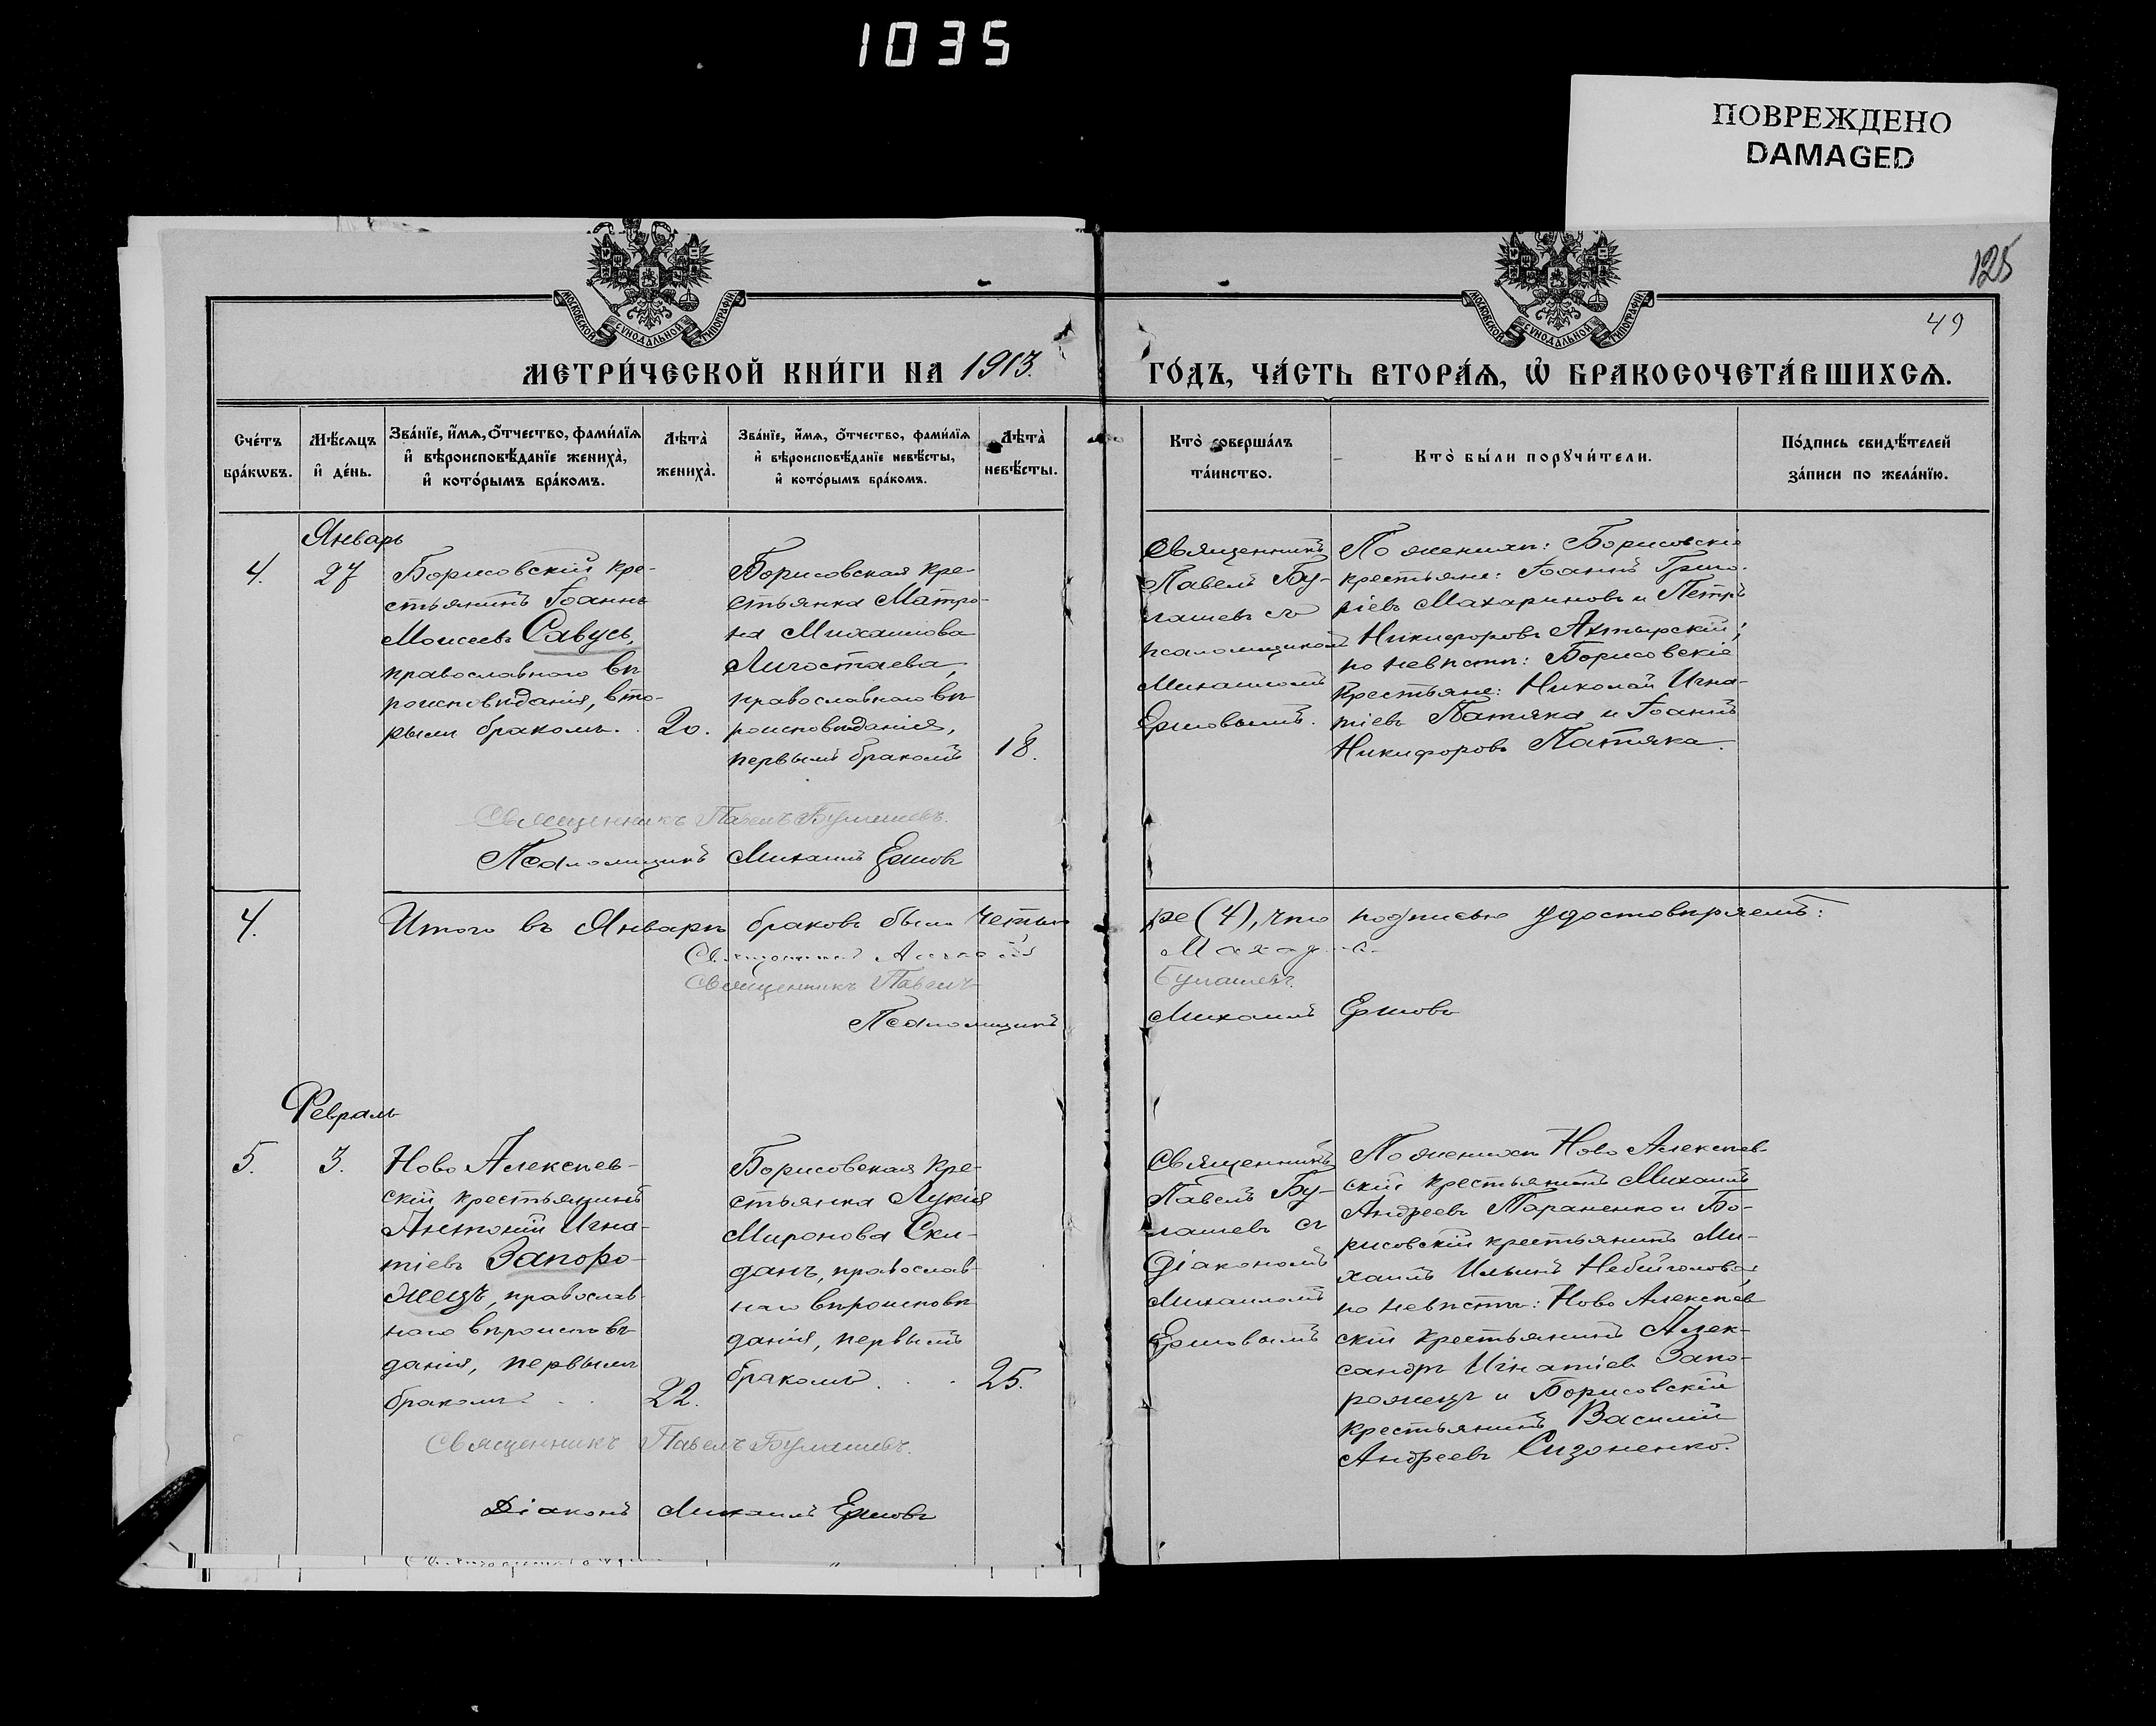 1035
ПОВРЕЖДЕНО
DAMAGED
125
49
МОСКОВСКОЙ СѴНОДАЛЬНОЙ ТИПОГРАФІИ
МОСКОВСКОЙ СѴНОДАЛЬНОЙ ТИПОГРАФІИ
МЕТРИ́ЧЕСКОЙ КНИ́ГИ НА 1913.
ГО́ДЪ, ЧА́СТЬ ВТОРА́Ѧ, Ѡ҆ БРАКОСОЧЕТА́ВШИХСѦ.
Сче́тъ
бра́кѡвъ.
Мѣ́сѧцъ
и҆ де́нь.
Зва́нїе, и҆́мѧ, ѻ҆́тчество, фами́лїѧ
и҆ вѣроисповѣ́данїе жениха̀,
и҆ кото́рымъ бра́комъ.
Лѣта̀
жениха̀.
Зва́нїе, и҆́мѧ, ѻ҆́тчество, фами́лїѧ
и҆ вѣроисповѣ́данїе невѣ́сты,
и҆ кото́рымъ бра́комъ.
Лѣта̀
невѣ́сты.
Кто̀ соверша́лъ
та́инство.
Кто̀ бы́ли порꙋчи́тели.
По́дпись свидѣ́телей
за́писи по жела́нїю.
Январь
4.
27
Борисовскій кре-
стьянинъ Іоаннъ
Моисеевъ Савусь,
православнаго вѣ
роисповѣданія, вто-
рымъ бракомъ.
20.
Борисовская кре-
стьянка Матро-
на Михаилова
православнаго вѣ
роисповѣданія,
первымъ бракомъ
18.
Священникъ
Павелъ Бу-
лашевъ съ
псаломщикомъ
Михаиломъ
Ершовымъ.
По женихѣ: Борисовскіе
крестьяне: Іоаннъ Григо-
ріевъ Махариновъ и Петръ
Никифоровъ Ахтырскій;
по невѣстѣ: Борисовскіе
крестьяне: Николай Игна-
тіевъ Патяка и Іоаннъ
Никифоровъ Патяка.
Священникъ Павелъ Булашевъ.
Псаломщикъ Михаилъ Ершовъ
4.
Итого въ Январѣ браковъ было четы-
ре (4), что подписью удостовѣряемъ:
Священникъ Павелъ
Булашевъ.
Псаломщикъ
Михаилъ Ершовъ
Февраль
5.
3.
Ново Алексѣев-
скій крестьянинъ
Антоній Игна-
тіевъ Запоро-
жецъ, православ-
наго вѣроисповѣ
данія, первымъ
бракомъ . .
22.
Борисовская кре-
стьянка Лукія
Миронова Ски-
данъ, православ-
наго вѣроисповѣ
данія, первымъ
бракомъ . . .
25.
Священникъ
Павелъ Бу-
лашевъ съ
діакономъ
Михаиломъ
Ершовымъ
По женихѣ Ново Алексѣев-
скій крестьянинъ Михаилъ
Андреевъ Параненко и Бо-
рисовскій крестьянинъ Ми-
хаилъ Ильинъ Небейголова;
по невѣстѣ: Ново Алексѣев
скій крестьянинъ Алек-
сандръ Игнатіевъ Запо-
рожецъ и Борисовскій
крестьянинъ Василій
Андреевъ Сизоненко.
Священникъ Павелъ Булашевъ.
Діаконъ Михаилъ Ершовъ